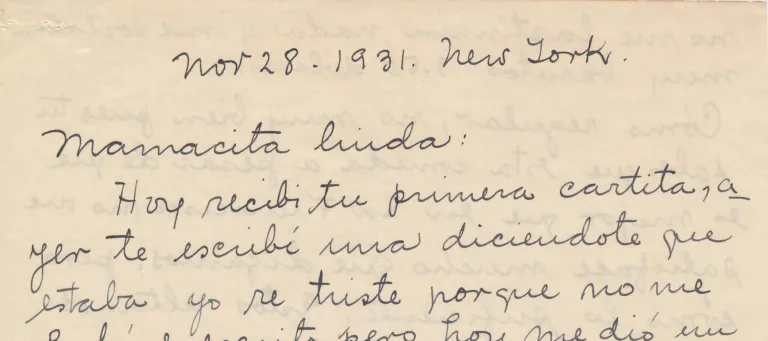 Nov 28 - 1931. New York.
Mamacita linda:
Hoy recibi tu primera cartita, a
yer te escribí una diciendote que
estaba yo re triste porque no me
pero hoy me dió un